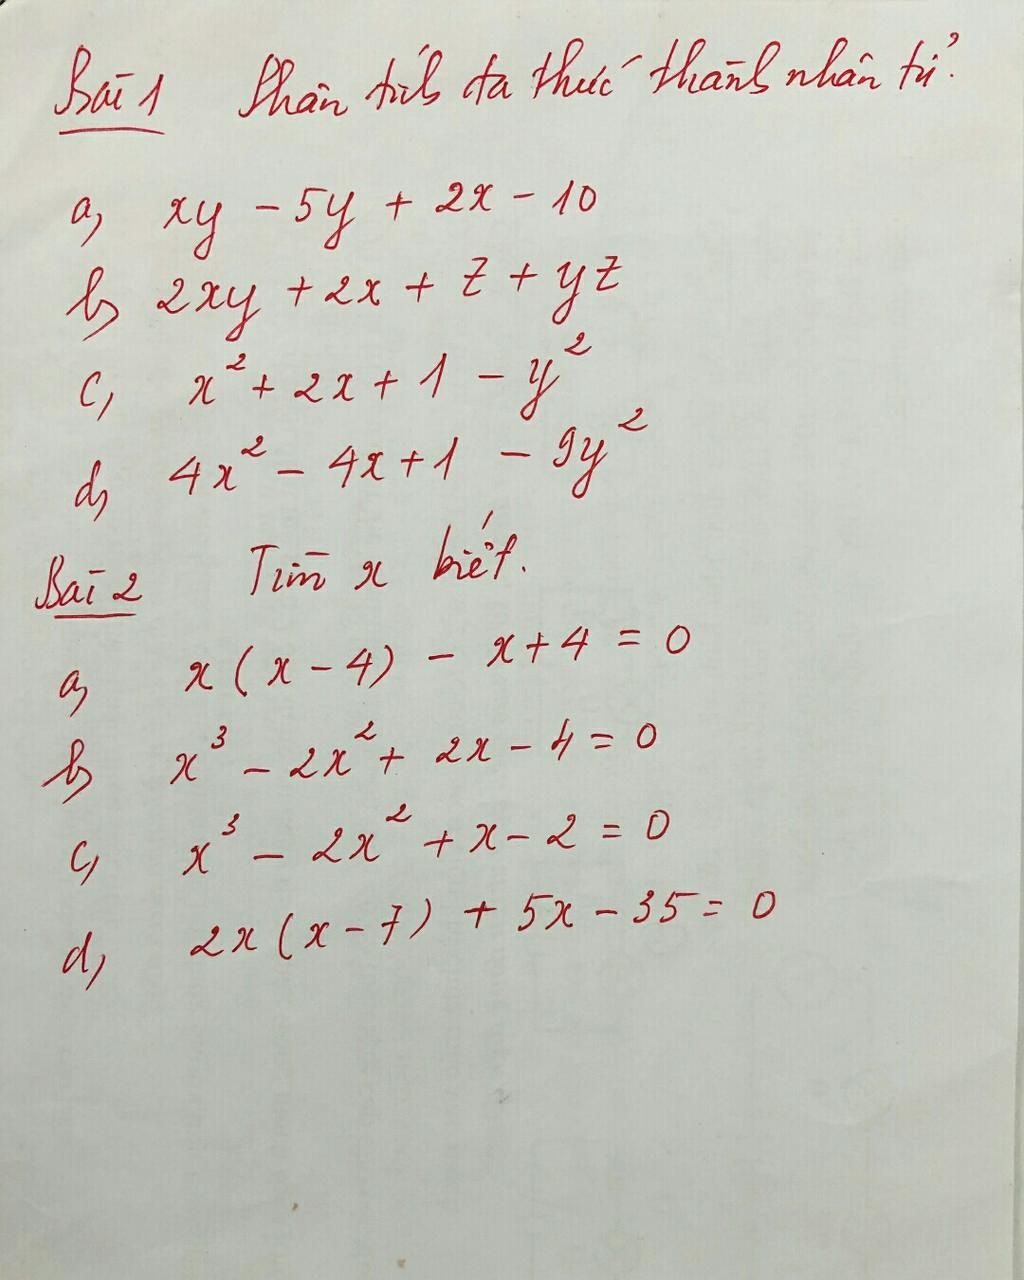 Bài 1 Phân tích đa thức thành nhân tử.
a, xy - 5y + 2x - 10
b, 2xy + 2x + z + yz
c, x² + 2x + 1 - y²
d, 4x² - 4x + 1 - 9y²
Bài 2 Tìm x biết.
a, x(x - 4) - x + 4 = 0
b, x³ - 2x² + 2x - 4 = 0
c, x³ - 2x² + x - 2 = 0
d, 2x(x - 7) + 5x - 35 = 0